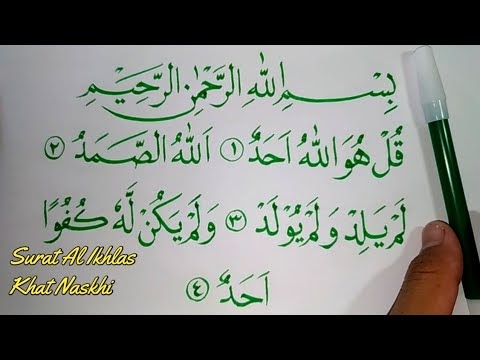 بِسْمِ اللهِ الرَّحْمٰنِ الرَّحِيْمِ
قُلْ هُوَ اللهُ اَحَدٌ ١ اَللهُ الصَّمَدُ ٢
لَمْ يَلِدْ وَلَمْ يُوْلَدْ ٣ وَلَمْ يَكُنْ لَّهٗ كُفُوًا
اَحَدٌ ٤
Surat Al Ikhlas
Khat Naskhi